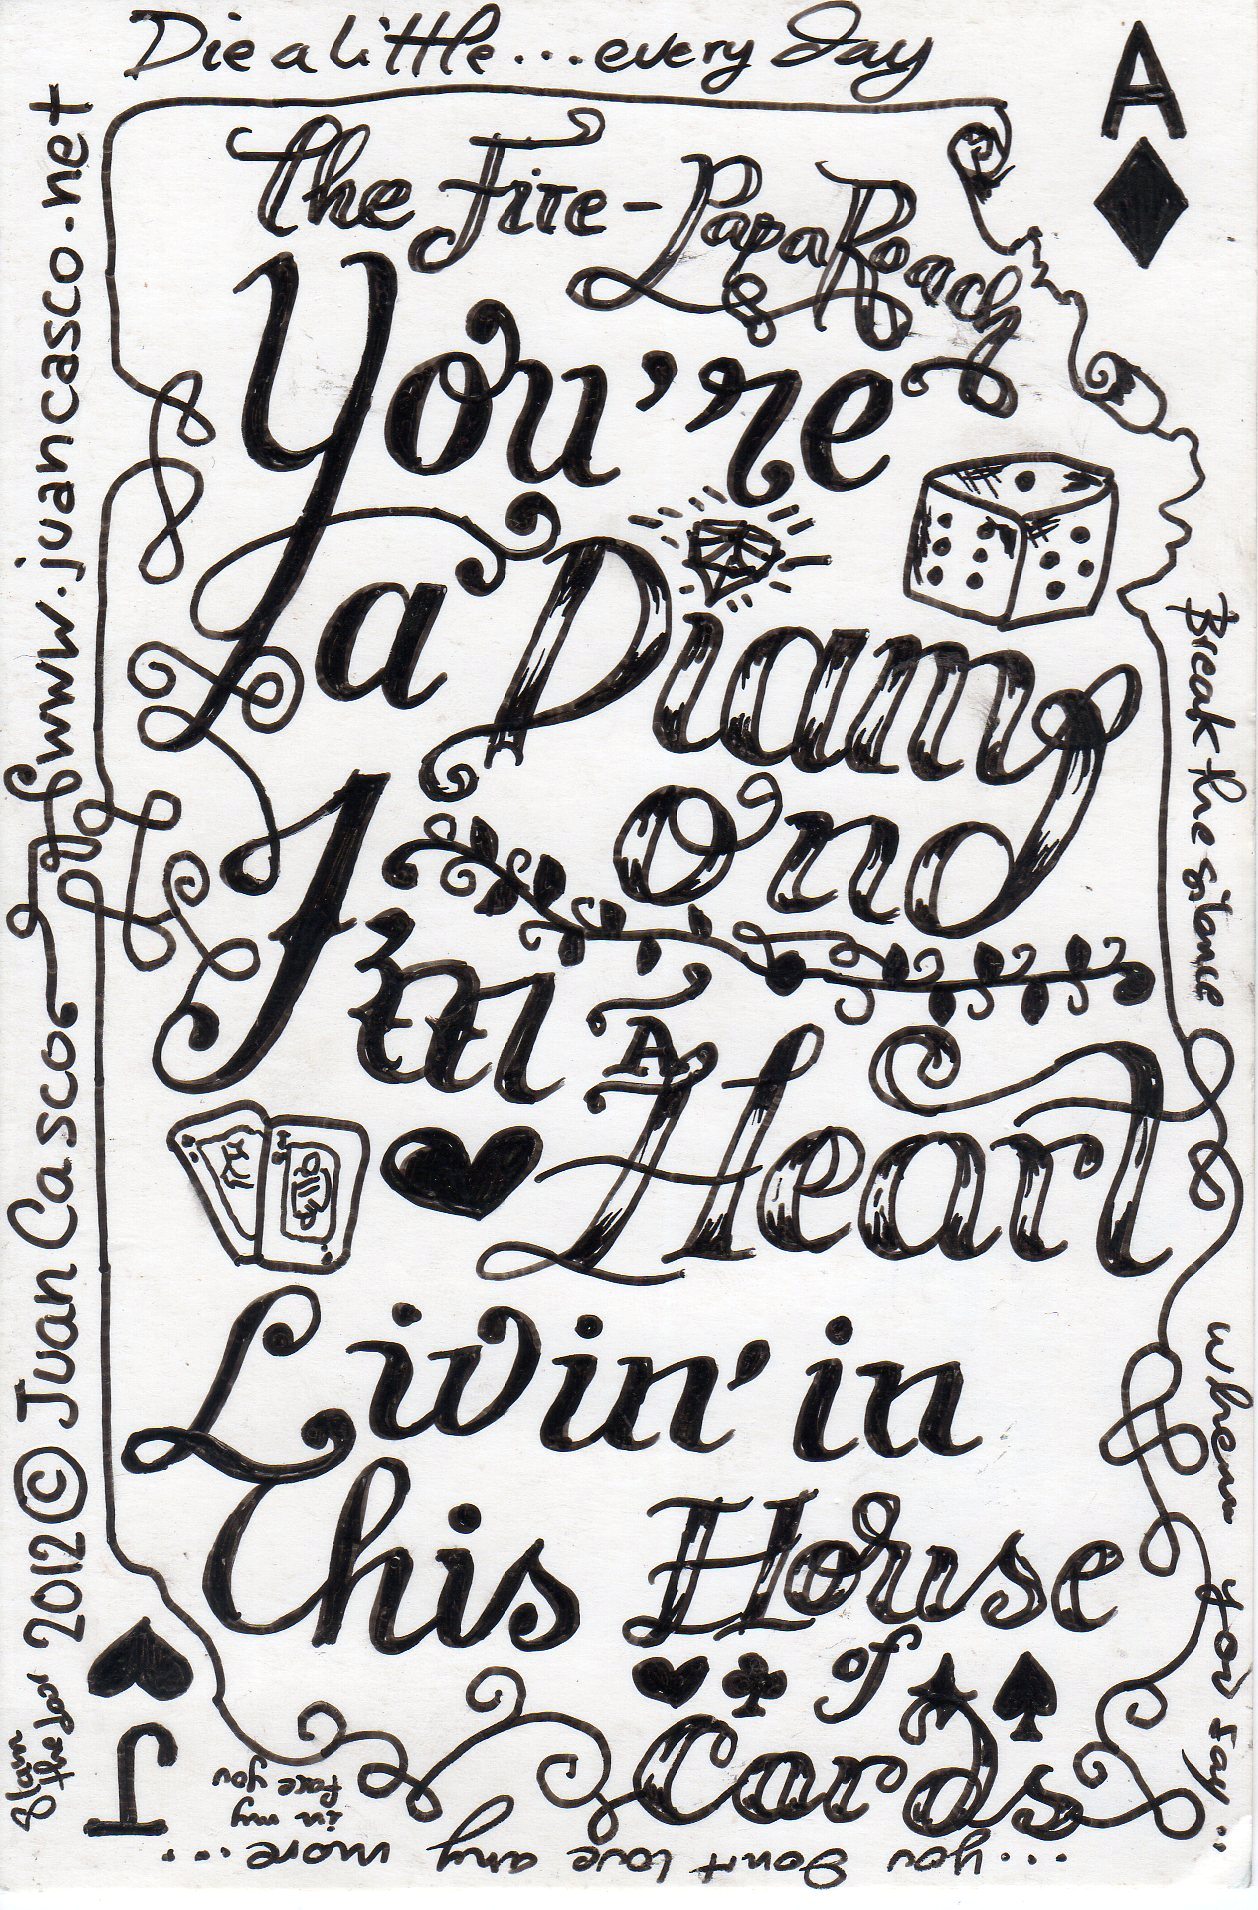 Die a little...every day
A
The Fire-PapaRoach
You're
a Diam
ond
I'm
A Heart
Livin' in
This House
of
Cards
Break the silence
when you say...
...you don't love any more...
in my
face you
slam
the door
J
Juan Casco www.juancasco.net
2012 © Juan Casco